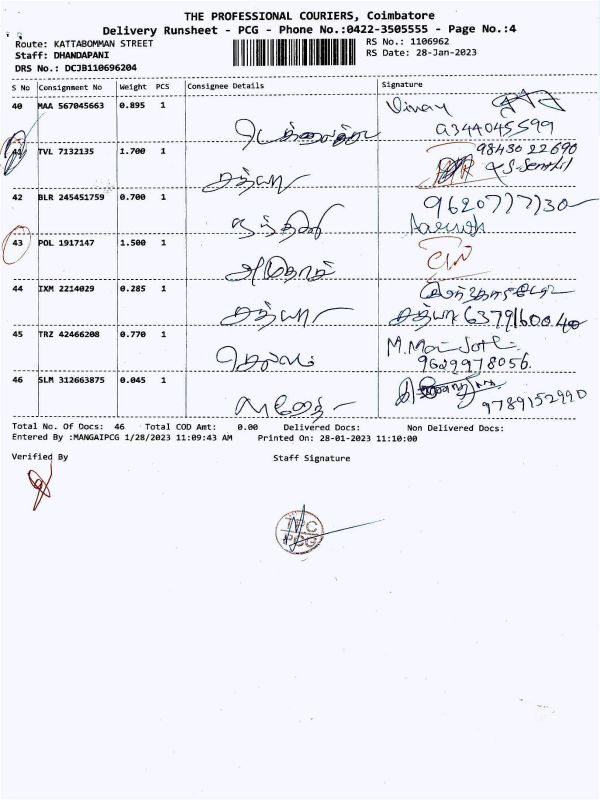 THE PROFESSIONAL COURIERS, Coimbatore
Delivery Runsheet - PCG - Phone No.:0422-3505555 - Page No.:4
Route: KATTABOMMAN STREET
RS No.: 1106962
Staff: DHANDAPANI
RS Date: 28-Jan-2023
DRS No.: DCJB110696204
S No Consignment No Weight PCS Consignee Details Signature
40 MAA 567045663 0.895 1 Vinay
9344045599
41 TVL 7132135 1.700 1 சத்யா 9843022690
42 BLR 245451759 0.700 1 நந்தினி 9620777730
43 POL 1917147 1.500 1
44 IXM 2214029 0.285 1 சத்யா
சத்யா 6379160040
45 TRZ 42466208 0.770 1 M.
9629978056.
46 SLM 312663875 0.045 1
9789152990
Total No. Of Docs: 46 Total COD Amt: 0.00 Delivered Docs: Non Delivered Docs:
Entered By :MANGAIPCG 1/28/2023 11:09:43 AM Printed On: 28-01-2023 11:10:00
Verified By Staff Signature
TPC
PCG